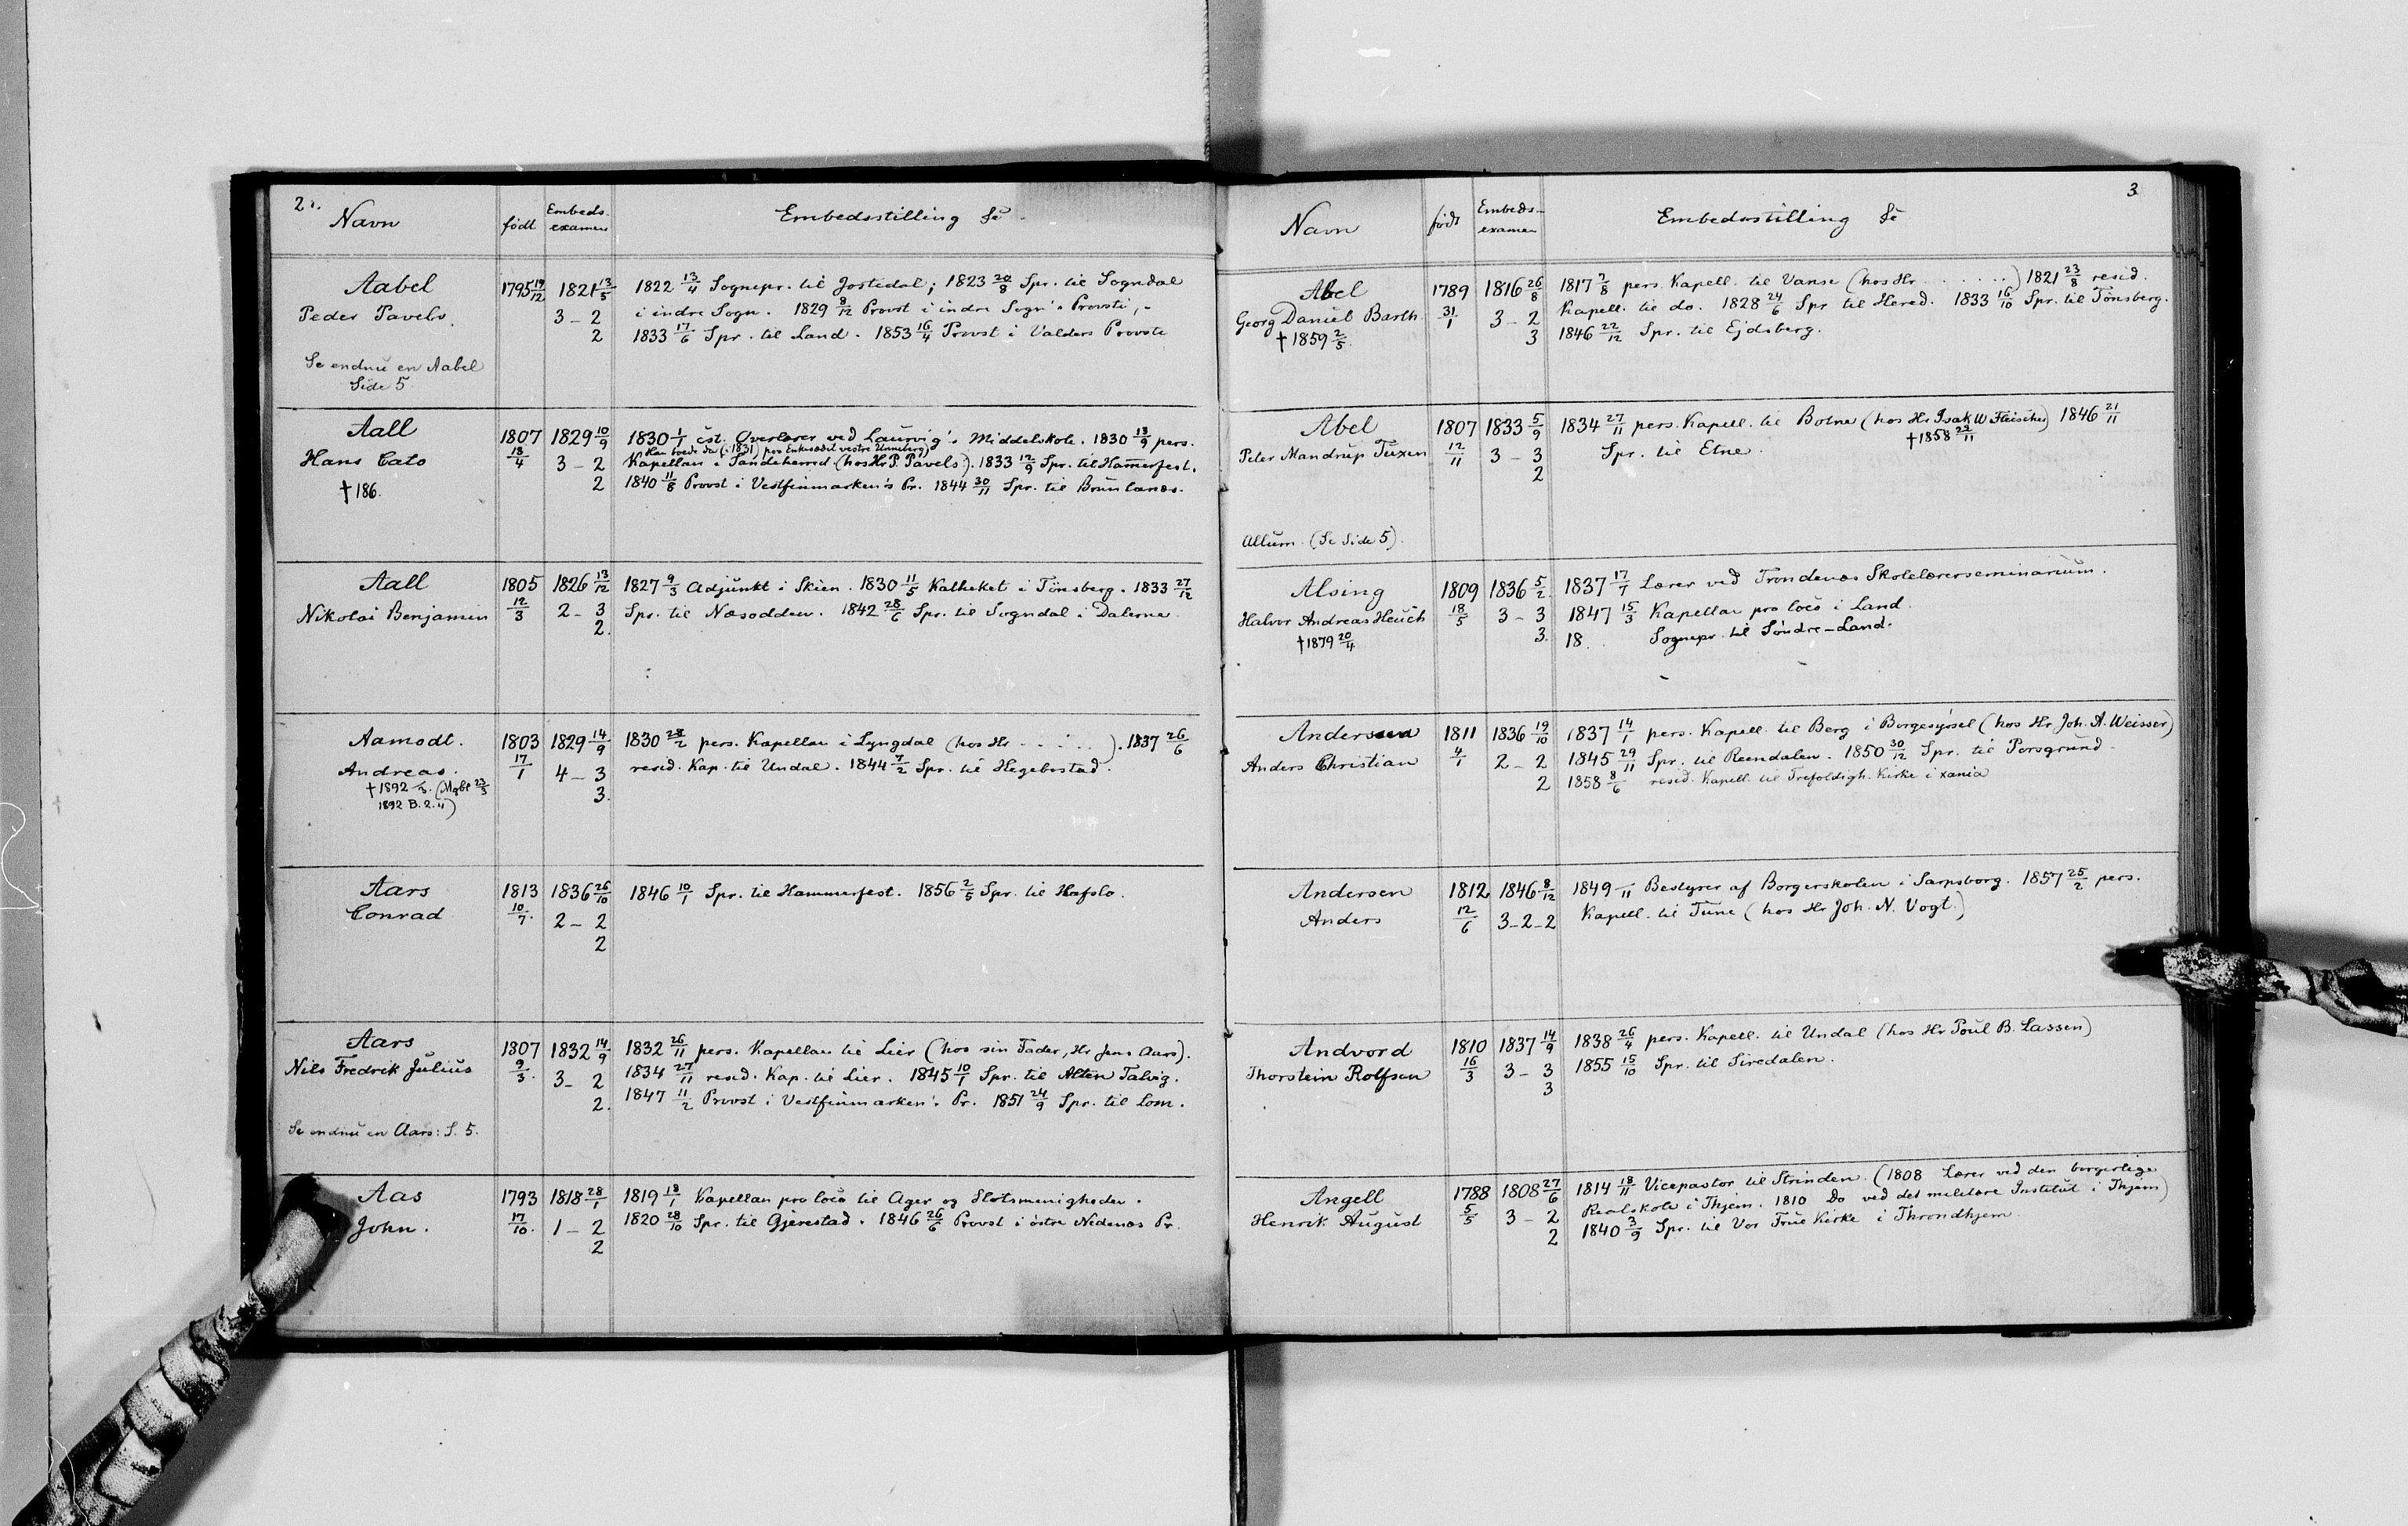 2.
Navn
født
Embeds-
examen
Embedsstilling &c
Aabel
Peder Pavels.
Se endnu en Aabel
Side 5
1795 19/12
1821 13/5
3 - 2
2
1822 13/4 Sognepr. til Jostedal; 1823 20/8 Spr. til Sogndal
i indre Sogn. 1829 8/12 Provst i indre Sogn's Provsti,
1833 17/6 Spr. til Land. 1853 16/4 Provst i Valders Provsti
Aall
Hans Cato
†186.
1807
18/4
1829 10/9
3 - 2
2
1830 1/1 cst. Overlærer ved Laurvig's Middelskole. 1830 13/9 pers.
Han boede da (1831) paa Enkesædet vestre Unneberg)
Kapellan i Sandeherred (hos Hr P. Pavels). 1833 12/9 Spr. til Hamerfest.
1840 11/8 Provst i Vestfinmarken's Pr. 1844 30/11 Spr. til Brunlanæs.
Aall
Nikolai Benjamin
1805
12/3
1826 13/12
2 - 3
2.
1827 9/3 Adjunkt i Skien. 1830 11/5 Katheket i Tönsberg. 1833 27/12
Spr. til Næsodden. 1842 28/6 Spr. til Sogndal i Dalerne
Aamodt.
Andreas.
†1892 /3. (Mgbl 23/3
1892 B. 2.")
1803
17/1
1829 14/9
4 - 3
3.
1830 28/2 pers. Kapellan i Lyngdal (hos Hr . . . . . ). 1837 26/6
resid. Kap. til Undal. 1844 7/2 Spr. til Hegebostad.
Aars
Conrad
1813
10/7.
1836 26/10
2 - 2
2
1846 10/1 Spr. til Hammerfest. 1856 2/5 Spr. til Hafslo.
Aars
Nils Fredrik Julius
Se endnu en Aars: S. 5.
1807
9/3.
1832 14/9
3 - 2
2.
1832 26/11 pers. Kapellan til Lier (hos sin Fader, Hr Jens Aars).
1834 27/11 resid. Kap. til Lier. 1845 10/1 Spr. til Alten Talvig.
1847 11/2 Provst i Vestfinmarken's Pr. 1851 24/9 Spr. til Lom.
Aas
John.
1793
17/10.
1818 28/1
1 - 2
2
1819 18/1 Kapellan pro loco til Ager og Slotsmenigheden.
1820 28/10 Spr. til Gjerestad. 1846 26/6 Provst i östre Nedenæs Pr.
3
Navn
født
Embeds-
examen
Embedsstilling &c
Abel
Georg Daniel Barth
†1859 2/5.
1789
31/1
1816 26/8
3 - 2
3
1817 7/8 pers. Kapell. til Vanse (hos Hr . . . . . . ) 1821 23/8 resid.
Kapell. til do. 1828 24/6 Spr til Hered. 1833 16/10 Spr. til Tönsberg.
1846 22/12 Spr. til Ejdsberg.
Abel
Peter Mandrup Tuxen
1807
12/11
1833 5/9
3 - 3
2
1834 27/11 pers. Kapell. til Botne (hos Hr Isak W Fleischer) 1846 21/11
Spr. til Etne. †1858 22/11
Allum. (Se Side 5).
Alsing
Halvor Andreas Heuch
†1879 20/4
1809
18/5
1836 5/2.
3 - 3
3.
1837 17/7 Lærer ved Trondenæs Skolelærerseminarium.
1847 15/3 Kapellan pro loco i Land.
18. Sognepr. til Söndre-Land.
Andersen
Anders Christian
1811
4/1
1836 19/10
2 - 2
2
1837 14/1 pers. Kapell. til Berg i Borgesyssel (hos Hr. Joh. A. Weisser)
1845 29/11 Spr. til Reendalen. 1850 30/12 Spr. til Porsgrund
1858 8/6 resid. Kapell. til Trefoldigh. Kirke i Xania
Andersen
Anders
1812
12/6
1846 8/12
3 - 2 - 2
1849 /11 Bestyrer af Borgerskolen i Sarpsborg. 1857 25/2 pers.
Kapell. til Tune (hos Hr Joh. N. Vogt.)
Andvord
Thorstein Rolfsen
1810
16/3
1837 14/9
3 - 3
3
1838 26/4 pers. Kapell. til Undal (hos Hr Poul B. Lassen)
1855 15/10 Spr. til Siredalen.
Angell
Henrik August
1788
5/5
1808 27/6
3 - 2
2
1814 18/11 Vicepastor til Strinden. (1808 Lærer ved den borgerlige
Realskole i Thjem. 1810 Do ved det militære Institut i Thjem)
1840 3/9 Spr. til Vor Frue Kirke i Throndhjem.